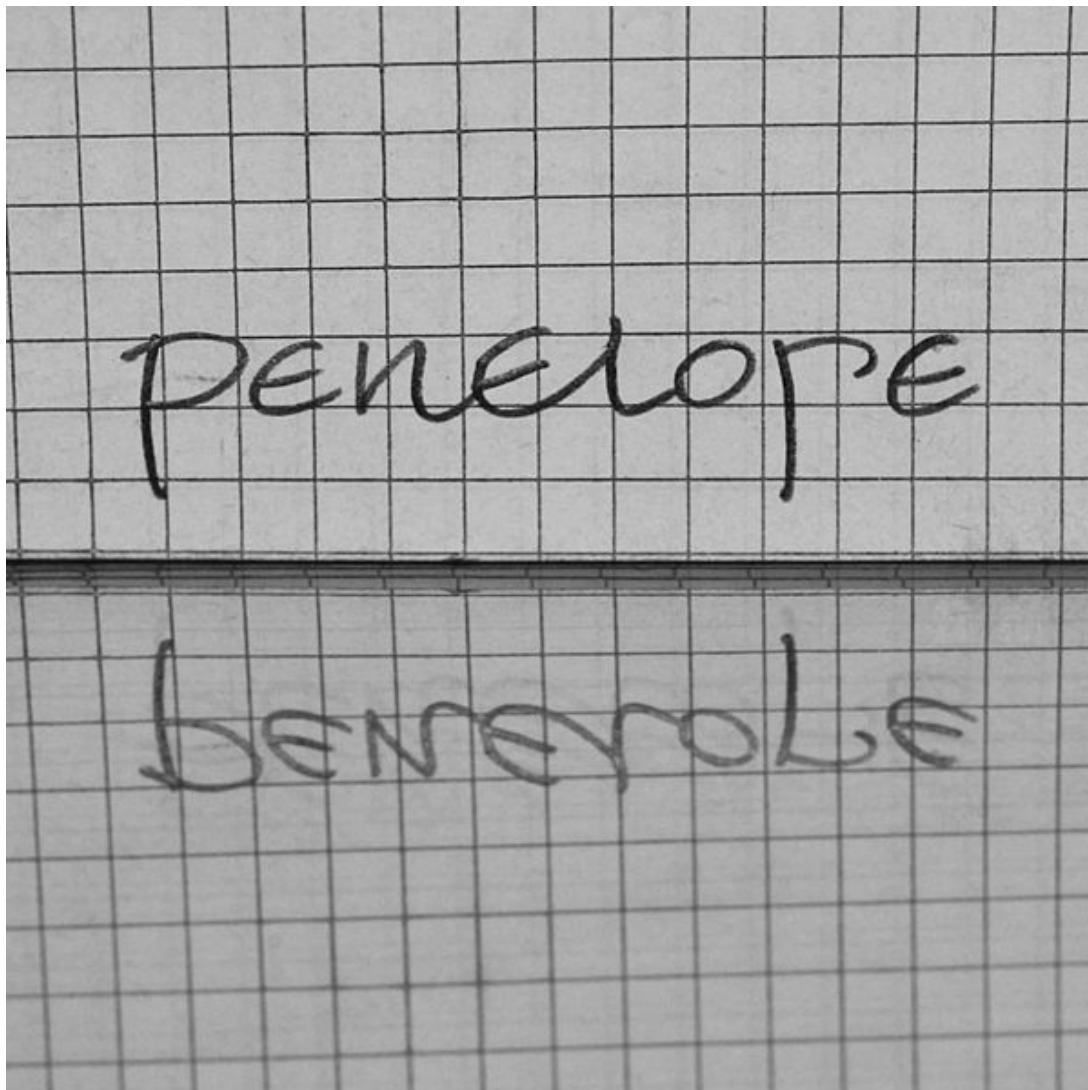 penelope
benerole